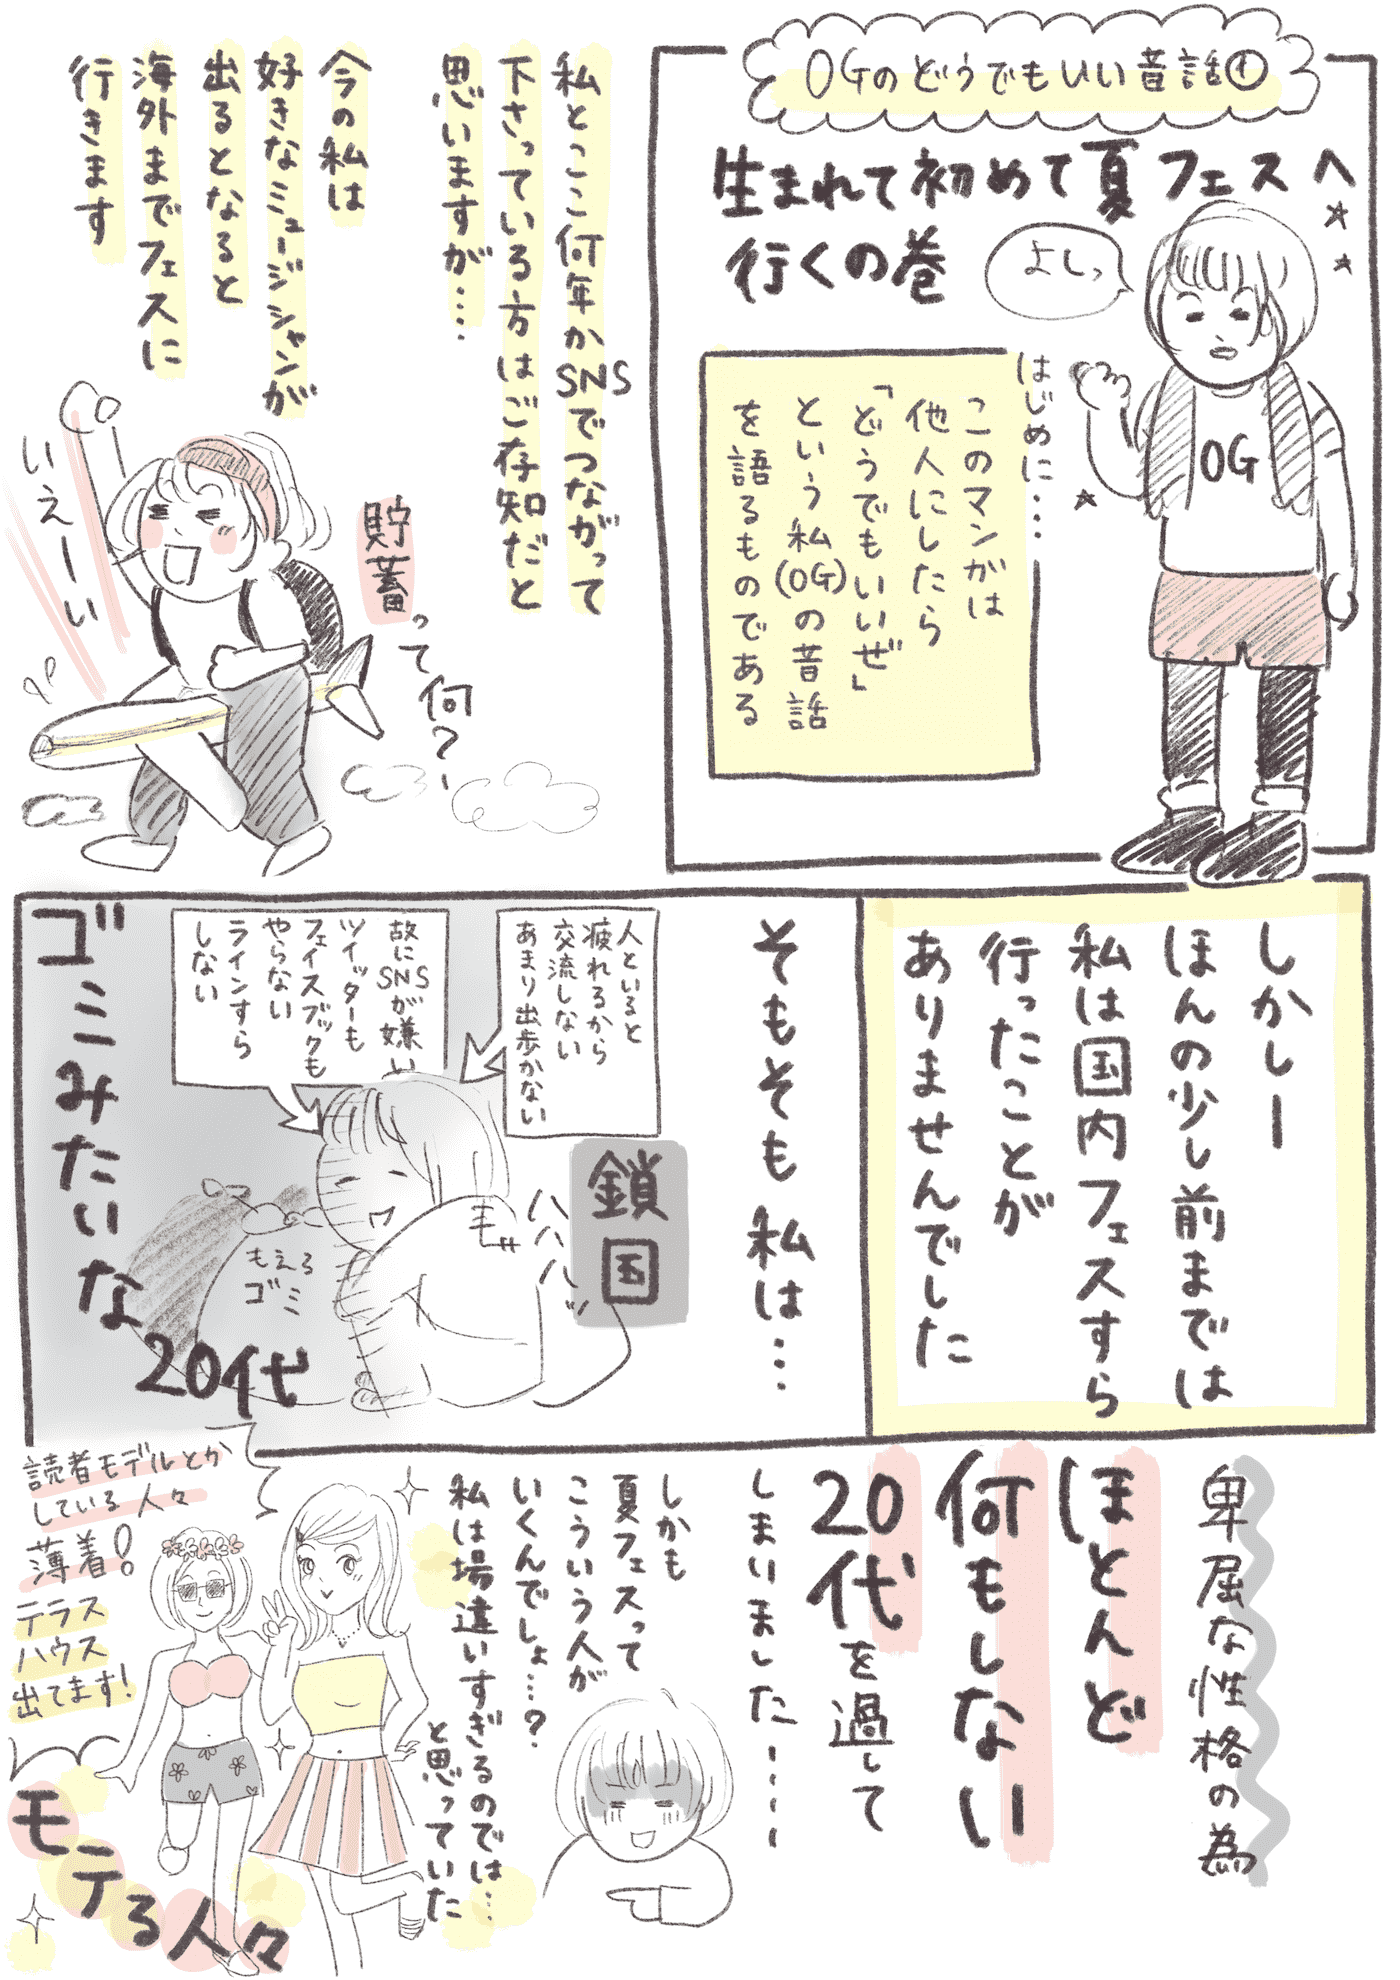 OGのどうでもいい昔話①
生まれて初めて夏フェスへ
行くの巻
よしっ
OG
はじめに・・・
このマンガは
他人にしたら
「どうでもいいぜ」
という私(OG)の昔話
を語るものである
私とここ何年かSNSでつながって
下さっている方はご存知だと
思いますが・・・
今の私は
好きなミュージシャンが
出るとなると
海外までフェスに
行きます
いえーい
貯蓄って何?
しかしー
ほんの少し前までは
私は国内フェスすら
行ったことが
ありませんでした
そもそも私は・・・
人といると
疲れるから
交流しない
あまり出歩かない
故に
SNSが嫌い
ツイッターも
フェイスブックも
やらない
ラインすら
しない
鎖国
ハハハッ
もえる
ゴミ
ゴミみたいな
20代
卑屈な性格の為
ほとんど
何もしない
20代を過して
しまいました・・・・
しかも
夏フェスって
こういう人が
いくんでしょ・・・?
私は場違いすぎるのでは・・・
と思っていた
読者モデルとか
している人々
薄着!
テラス
ハウス
出てます!
モテる人々